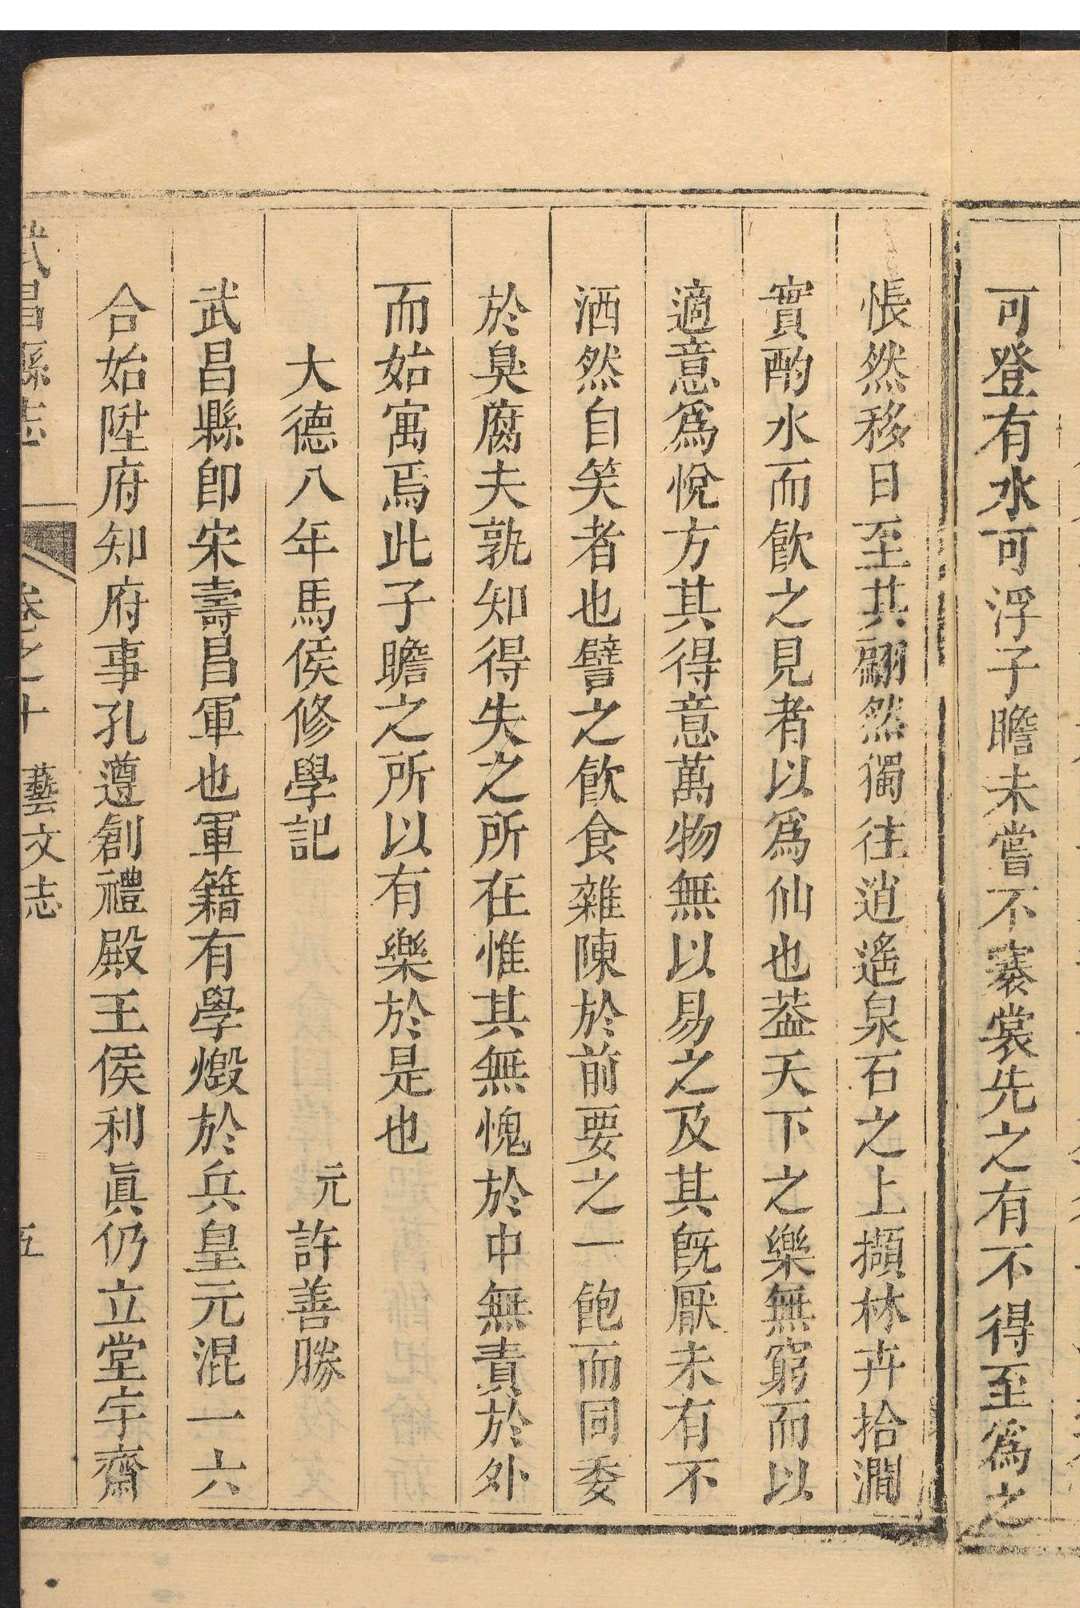 可登有水可浮子瞻未嘗不褰裳先之有不得至爲之
悵然移日至其翩然獨往逍遙泉石之上擷林卉拾澗
實酌水而飮之見者以爲仙也葢天下之樂無窮而以
適意爲悅方其得意萬物無以易之及其旣厭未有不
洒然自笑者也譬之飮食雜陳於前要之一飽而同委
於臭腐夫孰知得失之所在惟其無愧於中無責於外
而姑寓焉此子瞻之所以有樂於是也
大德八年馬侯修學記
元許善勝
武昌縣卽宋壽昌軍也軍籍有學燬於兵皇元混一六
合始陞府知府事孔遵創禮殿王侯利眞仍立堂宇齋
武昌縣志
卷之十
藝文志
五